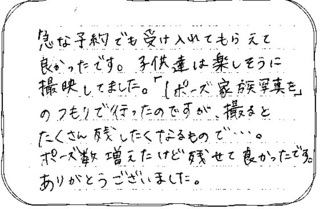 急な予約でも受け入れてもらえて
良かったです。子供達は楽しそうに
撮映してました。「1ポーズ家族写真を」
のつもりで行ったのですが、撮ると
たくさん残したくなるもので…。
ポーズ数増えたけど残せて良かったです。
ありがとうございました。